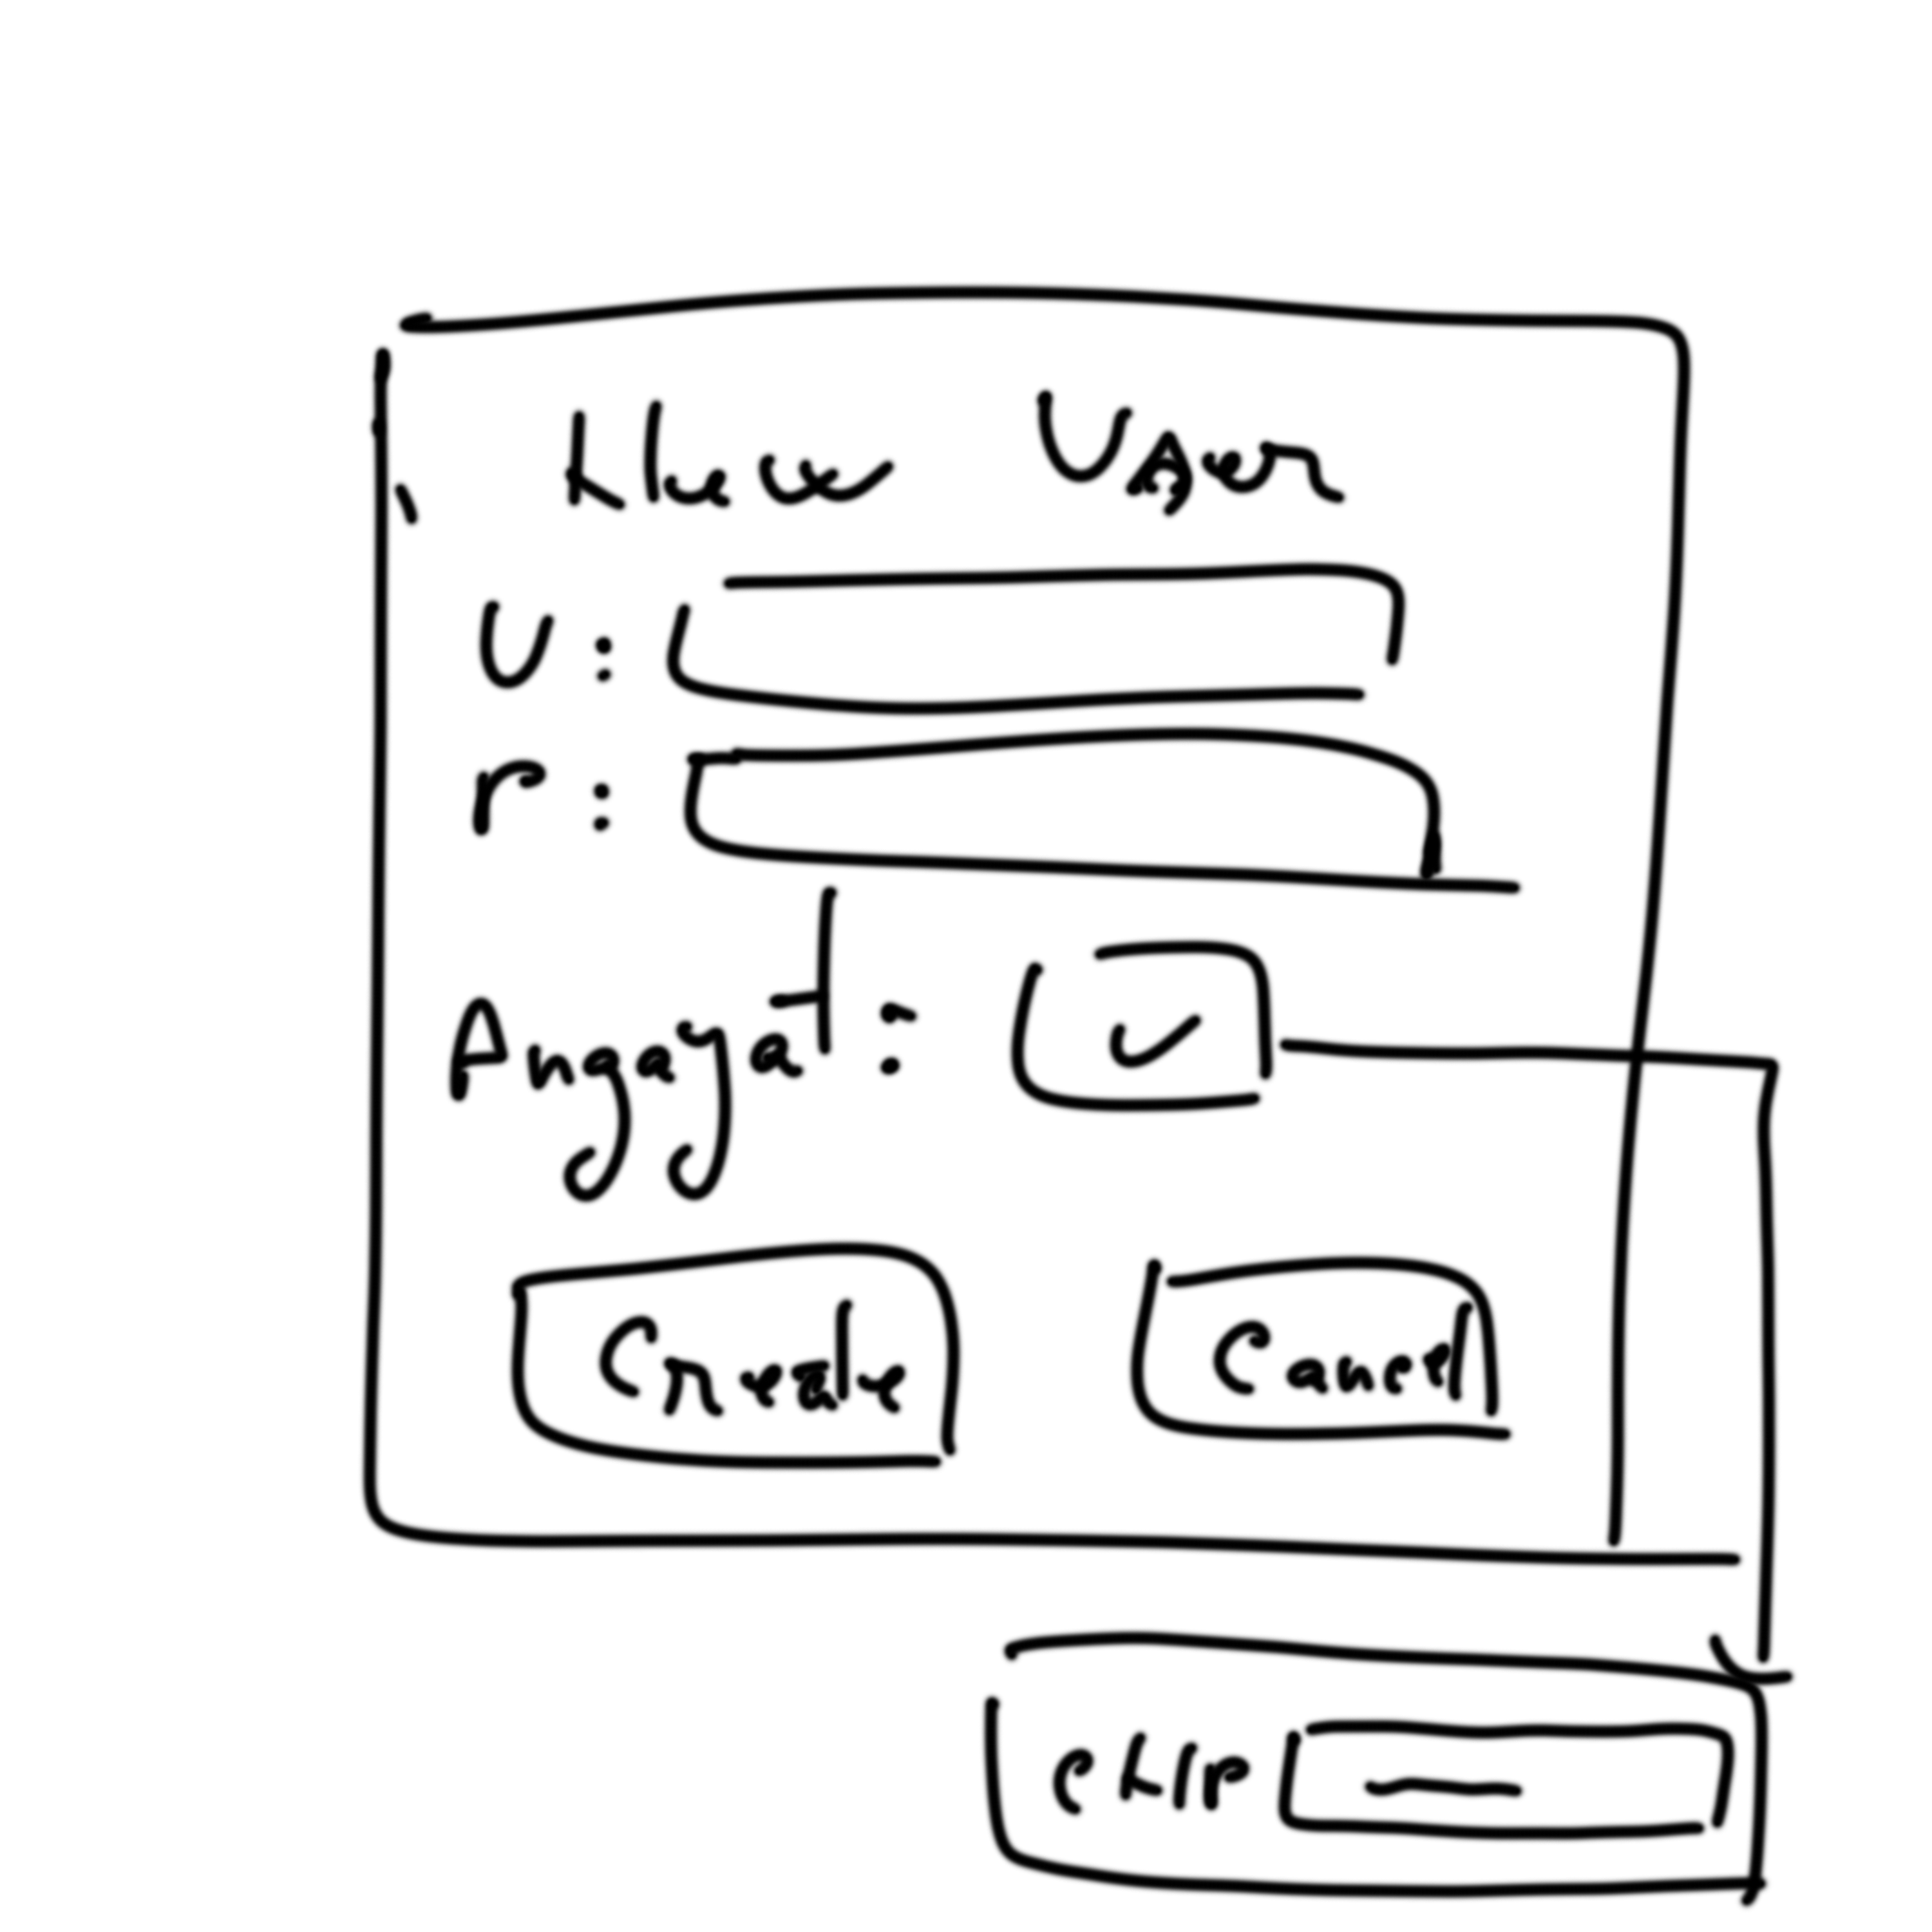 New User
U :
P :
Angajat :
Create Cancel